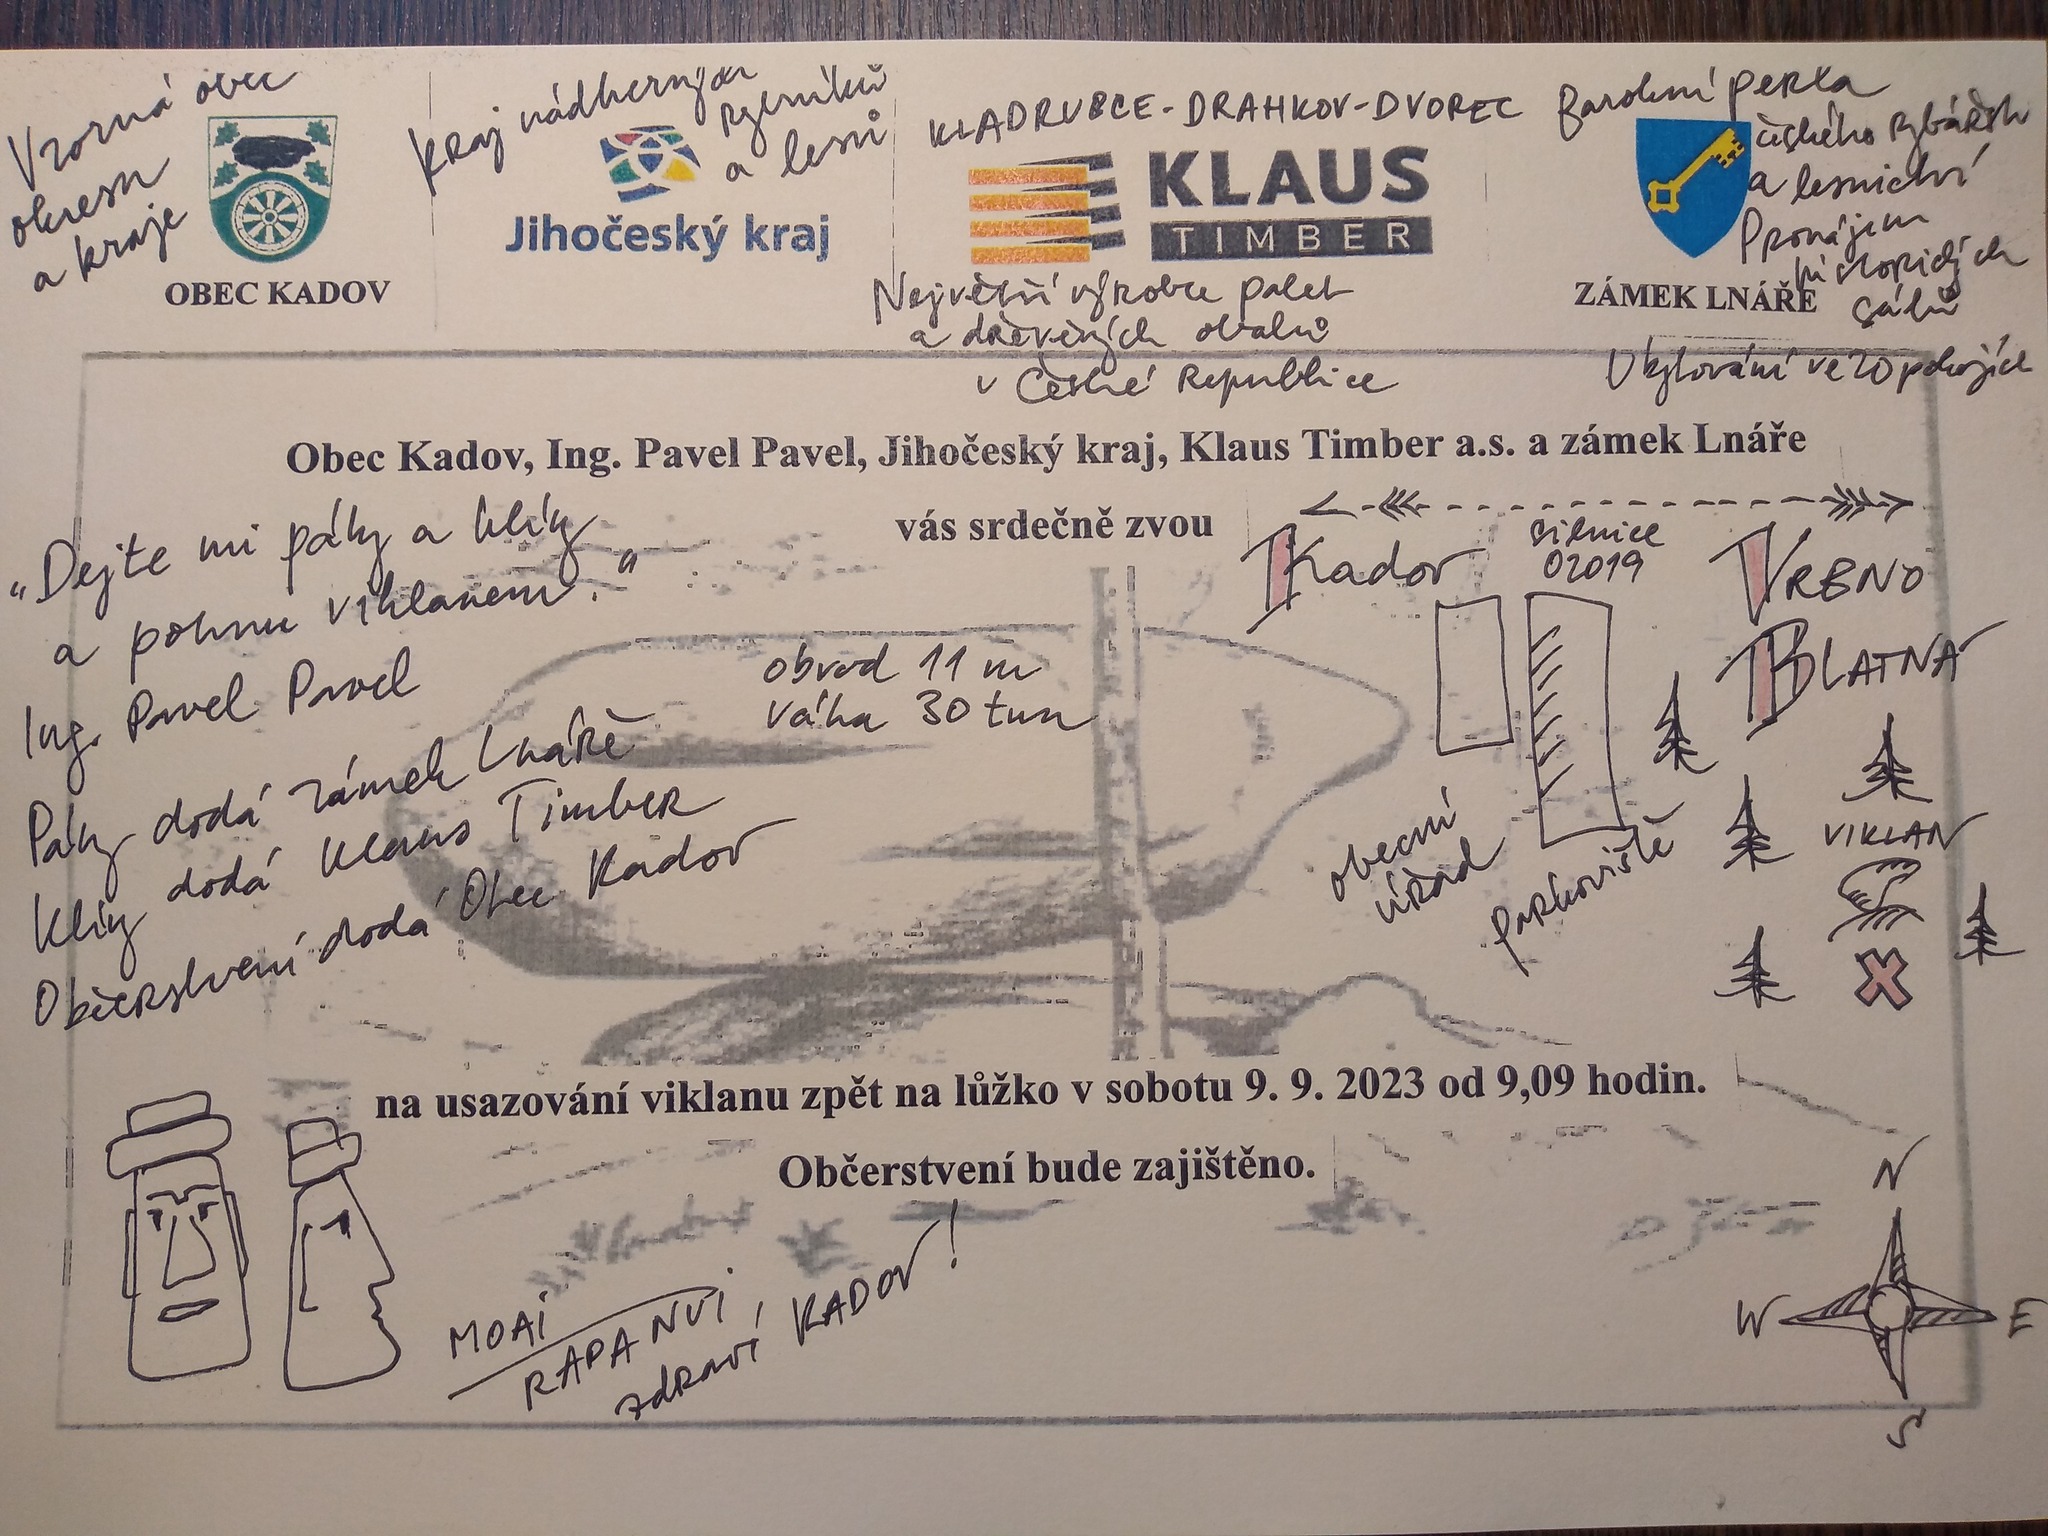 Vzorná obec
okresu
a kraje
OBEC KADOV
Kraj nádherných
rybníků
a lesů
Jihočeský kraj
KLADRUBCE-DRAHKOV-DVOREC
KLAUS
TIMBER
Největší výrobce palet
a dřevěných obalů
v České Republice
Barokní perla
českého rybářství
a lesnictví
Pronájem
historických
sálů
ZÁMEK LNÁŘE
Ubytování ve 20 pokojích
Obec Kadov, Ing. Pavel Pavel, Jihočeský kraj, Klaus Timber a.s. a zámek Lnáře
vás srdečně zvou
„Dejte mi páky a klíny
a pohnu viklanem."
Ing. Pavel Pavel
Páky dodá zámek Lnáře
Klíny dodá Klaus Timber
Občerstvení dodá Obec Kadov
obvod 11 m
váha 30 tun
Kadov
silnice
02019
VRBNO
BLATNÁ
obecní
úřad
parkoviště
VIKLAN
X
na usazování viklanu zpět na lůžko v sobotu 9. 9. 2023 od 9,09 hodin.
Občerstvení bude zajištěno.
MOAI
RAPA NUI
zdraví KADOV!
N
W
E
S